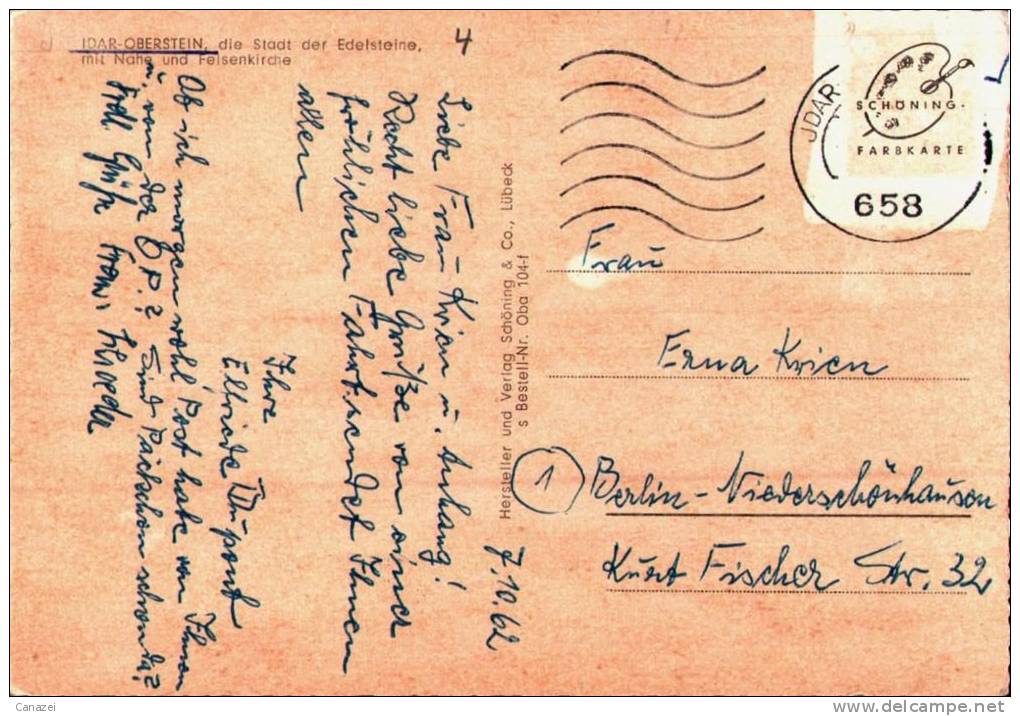 IDAR-OBERSTEIN, die Stadt der Edelsteine,
mit Nahe und Felsenkirche
4
7.10.62
Liebe Frau Krien u. Anhang!
Recht liebe Grüße von einer
fröhlichen Fahrt sendet Ihnen
allen
Ihre
Elfriede Dupont
Ob ich morgen wohl Post habe von Ihnen
u. von der P.? Sind Päckchen schon da?
Grüße
Hersteller und Verlag Schöning & Co., Lübeck
s Bestell-Nr. Oba 104-f
SCHÖNING-
FARBKARTE
IDAR-
658
Frau
Erna Krien
1
Berlin-Niederschönhausen
Kurt Fischer Str. 32
Canazei
www.delcampe.net